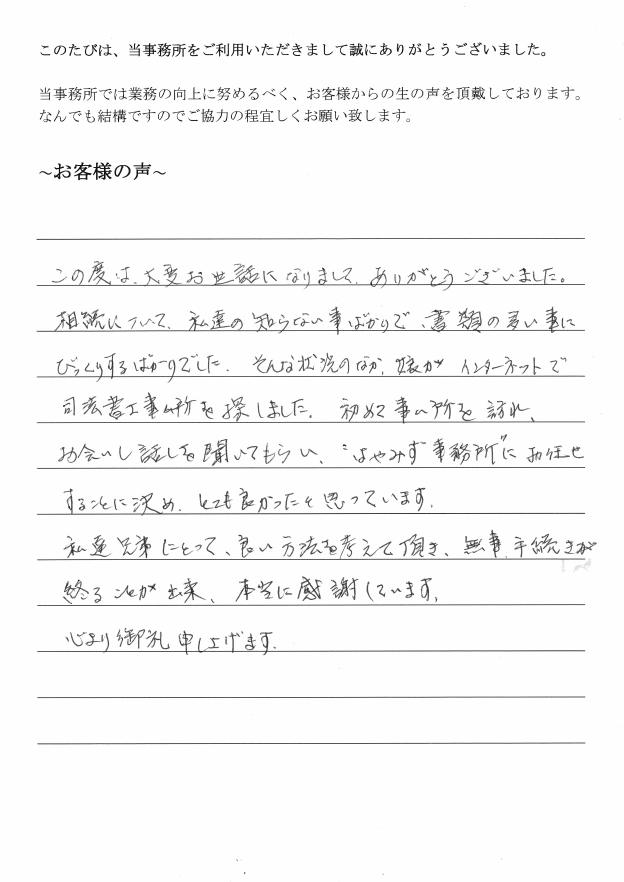 このたびは、当事務所をご利用いただきまして誠にありがとうございました。
当事務所では業務の向上に努めるべく、お客様からの生の声を頂戴しております。
なんでも結構ですのでご協力の程宜しくお願い致します。
~お客様の声~
この度は、大変お世話になりまして、ありがとうございました。
相続について、私達の知らない事ばかりで、書類の多い事に
びっくりするばかりでした。そんな状況のなか、娘がインターネットで
司法書士事ム所を探しました。初めて事ム所を訪れ、
お会いし話しを聞いてもらい、"はやみず事務所"にお任せ
することに決め、とても良かったと思っています。
私達兄弟にとって、良い方法を考えて頂き、無事、手続きが
終ることが出来、本当に感謝しています。
心より御礼申し上げます。